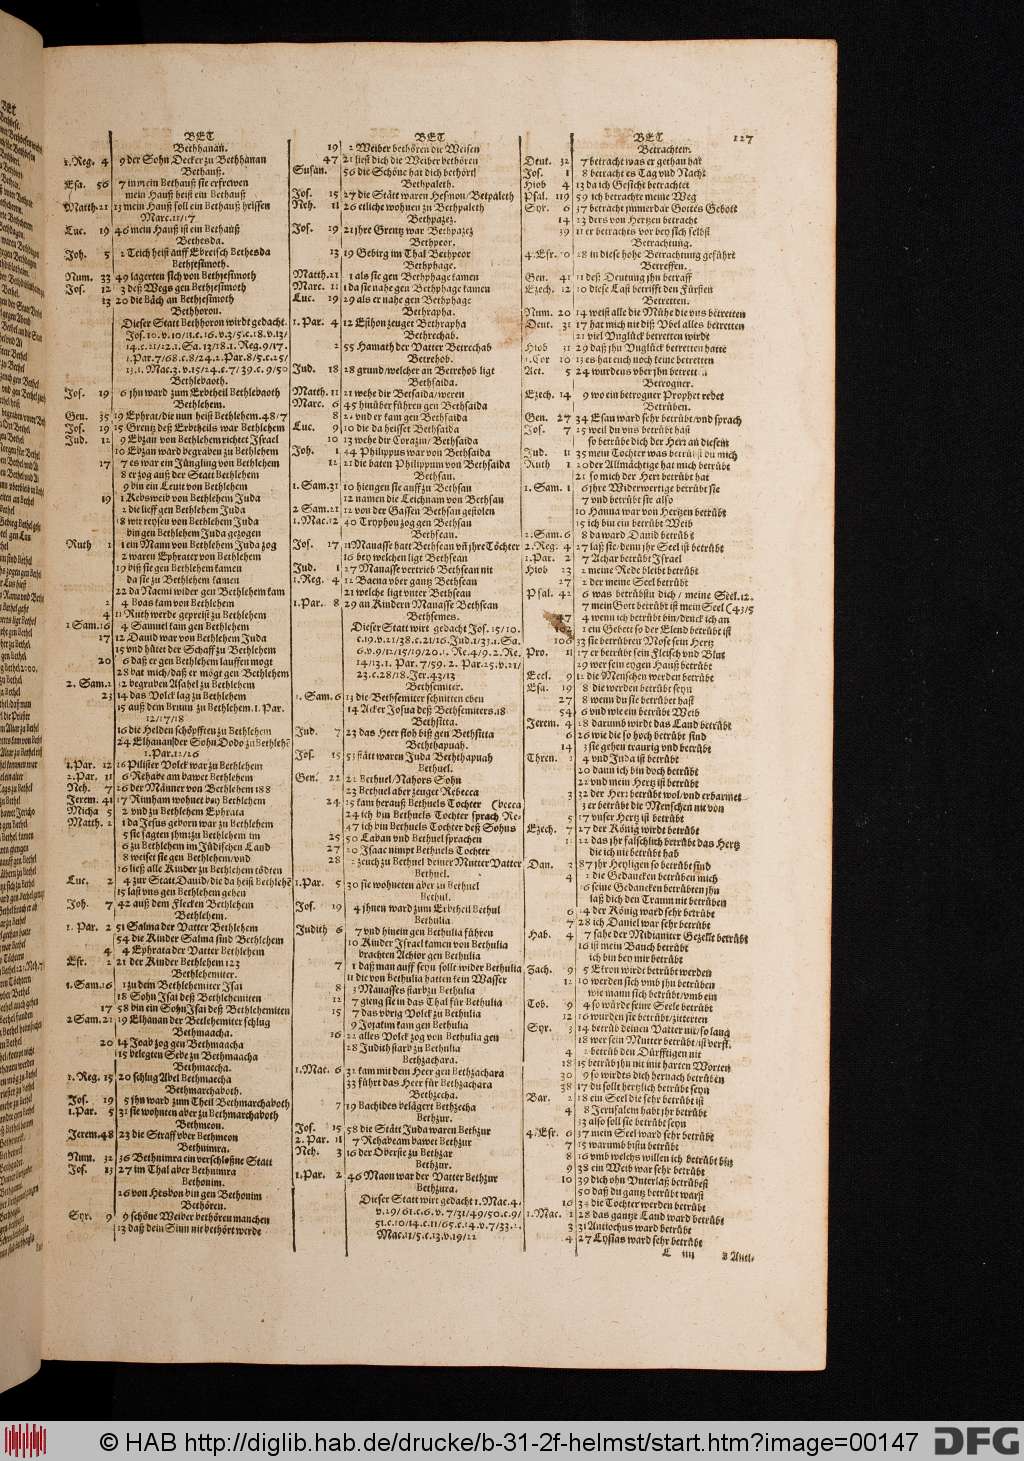 BET
Bethhanan.
1. Reg. 4 9 der Sohn Decker zu Bethhanan
Bethauß.
Esa. 56 7 in mein Bethauß sie erfrewen
mein Hauß heist ein Bethauß
Matth. 21 13 mein Hauß soll ein Bethauß heissen
Marc. 11/17
Luc. 19 46 mein Hauß ist ein Bethauß
Bethesda.
Joh. 5 2 Teich heist auff Ebreisch Bethesda
Bethjesimoth.
Num. 33 49 lagerten sich von Bethjesimoth
Jos. 12 3 deß Wegs gen Bethjesimoth
13 20 die Bäch an Bethjesimoth
Bethhoron.
Dieser Statt Bethhoron wirdt gedacht.
Jos. 10. v. 10/11. c. 16. v. 3/5. c. 18. v. 13/
14. c. 21/22. 1. Sa. 13/18. 1. Reg. 9/17.
1. Par. 7/68. c. 8/24. 2. Par. 8/5. c. 25/
13. 1. Mac. 3. v. 15/24. c. 7/39. c. 9/50
Bethlebaoth.
Jos. 19 6 jhn ward zum Erbtheil Bethlebaoth
Bethlehem.
Gen. 35 19 Ephrat/die nun heist Bethlehem. 48/7
Jos. 19 15 Grentz deß Erbtheils war Bethlehem
Jud. 12 9 Ebzan von Bethlehem richtet Jsrael
10 Ebzan ward begraben zu Bethlehem
17 7 es war ein Jüngling von Bethlehem
8 er zog auß der Statt Bethlehem
9 bin ein Levit von Bethlehem
19 1 Kebsweib von Bethlehem Juda
2 die lieff gen Bethlehem Juda
18 wir reysen von Bethlehem Juda
bin gen Bethlehem Juda gezogen
Ruth 1 1 ein Mann von Bethlehem Juda zog
2 waren Ephrater von Bethlehem
19 biß sie gen Bethlehem kamen
da sie zu Bethlehem kamen
22 da Naemi wider gen Bethlehem kam
2 4 Boas kam von Bethlehem
4 11 Ruth werde gepreist zu Bethlehem
1 Sam. 16 4 Samuel kam gen Bethlehem
17 12 Dauid war von Bethlehem Juda
15 vnd hütet der Schaff zu Bethlehem
20 6 daß er gen Bethlehem lauffen mögt
28 bat mich/daß er mögt gen Bethlehem
2. Sam. 2 32 begruben Asahel zu Bethlehem
23 14 das Volck lag zu Bethlehem
15 auß dem Brunn zu Bethlehem. 1. Par.
12/17/18
16 die Helden schöpfften zu Bethlehem
24 Elhanan/der Sohn Dodo zu Bethlehē
1. Par. 12/26
1. Par. 12 16 Pilister Volck war zu Bethlehem
2. Par. 11 6 Rehabeam bawet Bethlehem
Neh. 7 26 der Männer von Bethlehem 188
Jerem. 41 17 Rimham wohnet bey Bethlehem
Micha 5 2 vnd zu Bethlehem Ephrata
Matth. 2 1 da Jesus geborn war zu Bethlehem
5 sie sagten jhm: zu Bethlehem im
6 zu Bethlehem im Jüdischen Land
8 weiset sie gen Bethlehem/vnd
16 ließ alle Kinder zu Bethlehem tödten
Luc. 2 4 zur Statt Dauid/die da heist Bethlehē
15 last vns gen Bethlehem gehen
Joh. 7 42 auß dem Flecken Bethlehem
Bethlehem.
1. Par. 2 51 Salma der Vatter Bethlehem
54 die Kinder Salma sind Bethlehem
4 4 Ephrata der Vatter Bethlehem
Esr. 2 21 der Kinder Bethlehem 123
Bethlehemiter.
1. Sam. 16 1 zu dem Bethlehemiter Jsai
18 Sohn Jsai deß Bethlehemiten
17 58 bin ein Sohn Jsai deß Bethlehemiten
2 Sam. 21 19 Elhanan der Bethlehemiter schlug
Bethmaacha.
20 14 Joab zog gen Bethmaacha
15 belegten Seba zu Bethmaacha
Bethmaecha.
1. Reg. 15 20 schlug Abel Bethmaecha
Bethmarchaboth.
Jos. 19 5 jhn ward zum Theil Bethmarchaboth
1. Par. 5 31 sie wohneten aber zu Bethmarchaboth
Bethmeon.
Jerem. 48 23 die Straff vber Bethmeon
Bethnimra.
Num. 32 36 Bethnimra ein verschloßne Statt
Jos. 13 27 im Thal aber Bethnimra
Bethonim.
26 von Hesbon bin gen Bethonim
Bethören.
Syr. 9 9 schöne Weiber bethören manchen
13 daß dein Sinn nit bethört werde
BET
19 2 Weiber bethören die Weisen
47 21 liest dich die Weiber bethören
Susan. 56 die Schöne hat dich bethört
Bethpaleth.
Jos. 15 27 die Stätt waren Hesmon/Betpaleth
Neh. 11 26 etliche wohnen zu Bethpaleth
Bethpazez.
Jos. 19 21 jhre Grentz war Bethpazez
Bethpeor.
13 19 Gebirg im Thal Bethpeor
Bethphage.
Matth. 21 1 als sie gen Bethphage kamen
Marc. 11 1 da sie nahe gen Bethphage kamen
Luc. 19 29 als er nahe gen Bethphage
Bethrapha.
1. Par. 4 12 Esthon zeuget Bethrapha
Bethrechab.
2 55 Hamath der Vatter Betrechab
Betrehob.
Jud. 18 28 grund/welcher an Betrehob ligt
Bethsaida.
Matth. 11 21 wehe dir Betsaida/weren
Marc. 6 45 hinüber führen gen Bethsaida
8 22 vnd er kam gen Bethsaida
Luc. 9 10 die da heisset Bethsaida
10 13 wehe dir Corazin/Bethsaida
Joh. 1 44 Philippus war von Bethsaida
12 21 die baten Philippum von Bethsaida
Bethsan.
1. Sam. 31 10 hiengen sie auff zu Bethsan
12 namen die Leichnam von Bethsan
2 Sam. 21 12 von der Gassen Bethsan gestolen
1. Mac. 12 40 Tryphon zog gen Bethsan
Bethsean.
Jos. 17 11 Manasse hatt Bethsean vñ jhre Töchter
16 bey welchen ligt Bethsean
Jud. 1 27 Manasse vertrieb Bethsean nit
1. Reg. 4 12 Baena vber gantz Bethsean
21 welche ligt vnter Bethsean
1. Par. 8 29 an Kindern Manasse Bethsean
Bethsemes.
Dieser Statt wirt gedacht Jos. 15/10.
c. 19. v. 21/38. c. 21/16. Jud. 1/33. 1. Sa.
6. v. 9/12/15/19/20. 1. Re. 4/9. 2. Re.
14/13. 1. Par. 7/59. 2. Par. 25. v. 21/
23. c. 28/18. Jer. 43/13
Bethsemiter.
1. Sam. 6 13 die Bethsemiter schnitten eben
14 Acker Josua deß Bethsemiters. 18
Bethsitta.
Jud. 7 23 das Heer floh biß gen Bethsitta
Beththapuah.
Jos. 15 53 stätt waren Juda Beththapuah
Bethuel.
Gen. 22 22 Bethuel/Nahors Sohn
23 Bethuel aber zeuget Rebecca
24 15 kam herauß Bethuels Tochter (becca
24 ich bin Bethuels Tochter sprach Re-
47 ich bin Bethuels Tochter deß Sohns
25 50 Laban vnd Bethuel sprachen
27 20 Jsaac nimpt Bethuels Tochter
28 2 zeuch zu Bethuel deiner Mutter Vatter
Bethuel.
1. Par. 5 30 sie wohneten aber zu Bethuel
Bethul.
Jos. 19 4 jhnen ward zum Erbtheil Bethul
Bethulia
Judith 6 7 vnd hinein gen Bethulia führen
10 Kinder Jsrael kamen von Bethulia
brachten Achior gen Bethulia
7 1 daß man auff seyn solle wider Bethulia
11 die von Bethulia hatten kein Wasser
8 3 Manasses starb zu Bethulia
12 7 gieng sie in das Thal für Bethulia
15 7 das vbrig Volck zu Bethulia
9 Jojakim kam gen Bethulia
16 22 alles Volck zog von Bethulia gen
28 Judith starb zu Bethulia
Bethzachara.
1. Mac. 6 31 kam mit dem Heer gen Bethzachara
33 führt das Heer für Bethzachara
Bethzecha.
7 19 Bachides belägert Bethzecha
Bethzur.
Jos. 15 58 die Stätt Juda waren Bethzur
2. Par. 11 7 Rehabeam bawet Bethzur
Neh. 3 16 der Oberste zu Bethzur
Bethzur.
1. Par. 2 46 Maon war der Vatter Bethzur
Bethzura.
Dieser Statt wirt gedacht 1. Mac. 4.
v. 29/61. c. 6. v. 7/31/49/50. c. 9/
51. c. 10/14. c. 11/65. c. 14. v. 7/33. 2.
Mac. 11/5. c. 13. v. 19/22
BET 127
Betrachten.
Deut. 32 7 betracht was er gethan hat
Jos. 1 8 betracht es Tag vnd Nacht
Hiob 4 13 da ich Gesicht betrachtet
Psal. 119 59 ich betrachte meine Weg
Syr. 6 37 betracht jmmerdar Gottes Gebott
14 22 ders von Hertzen betracht
39 11 er betrachts vor bey sich selbst
Betrachtung.
4. Esr. 10 28 in diese hohe Betrachtung geführt
Betreffen.
Gen. 41 11 deß Deutung jhn betraff
Ezech. 12 10 diese Last betrifft den Fürsten
Betretten.
Num. 20 14 weist alle die Mühe die vns betretten
Deut. 31 17 hat mich nit diß Vbel alles betretten
21 viel Vnglück betretten wirdt
Hiob 31 29 daß jhn Vnglück betretten hatte
1. Cor 10 13 es hat euch noch keine betretten
Act. 5 24 wurden vber jhn
Betrogner.
Ezech. 14 9 wo ein betrogner Prophet redet
Betrüben.
Gen. 27 34 Esau ward sehr betrübt/vnd sprach
Jos. 7 25 weil du vns betrübt hast
so betrübe dich der Herr an diesem
Jud. 11 35 mein Tochter was du mich
Ruth 1 20 der Allmächtige hat mich betrübt
21 so mich der Herr betrübt hat
1. Sam. 1 6 jhre Widerwertige betrübt sie
7 vnd betrübt sie also
10 Hanna war von Hertzen betrübt
15 ich bin ein betrübt Weib
2. Sam. 6 8 da ward Dauid betrübt
2. Reg. 4 27 laß sie/denn jhr Seel ist betrübt
1. Par. 2 7 Achar betrübt Jsrael
Hiob 23 2 meine Rede bleibt betrübt
27 2 der meine Seel betrübt
Psal. 42 6 was betrübstu dich/meine Seel. 12.
7 mein Gott betrübt ist mein Seel (43/5
4 wenn ich betrübt bin/druck ich an
1 ein Gebett so der Elend betrübt ist
106 33 sie betrübten Mose sein Hertz
Pro. 11 17 er betrübt sein Fleisch vnd Blut
29 wer sein eygen Hauß betrübt
Eccl. 9 12 die Menschen werden betrübt
Esa. 19 8 die werden betrübt seyn
27 8 wenn du sie betrübt hast
54 6 vnd wie ein betrübt Weib
Jerem. 4 28 darumb wirdt das Land betrübt
6 26 wie die so hoch betrübt sind
14 3 sie gehen traurig vnd betrübt
Thren. 2 4 vnd Juda ist betrübt
20 dann ich bin doch betrübt
22 vnd mein Hertz ist betrübt
3 32 der Herr betrübt wol/vnd erbarmet
3 er betrübt die Menschen nit von
5 17 vnser Hertz ist betrübt
Ezech. 7 27 der König wirdt betrübt
22 das jhr fälschlich betrübt das Hertz
die ich nit betrübt hab
Dan. 2 87 jhr Heyligen so betrübt sind
4 2 die Gedancken betrüben mich
16 seine Gedancken betrübten jhn
laß dich den Traum nit betrüben
6 14 der König ward sehr betrübt
7 28 ich Daniel war sehr betrübt
Hab. 4 7 sahe der Midianiter Gezelt betrübt
16 ist mein Bauch betrübt
ich bin bey mir betrübt
Zach. 9 5 Ekron wirdt betrübt werden
12 10 werden sich vmb jhn betrüben
wie mann sich betrübt/vmb ein
Tob. 9 4 so würde seine Seele betrübt
12 16 wurden sie betrübt/zitterten
Syr. 3 14 betrüb deinen Vatter nit/so lang
18 wer sein Mutter betrübt/ist verfl.
4 2 betrüb den Dürfftigen nit
18 15 betrüb jhn nit mit harten Worten
30 9 so würdts dich hernach betrüben
38 17 du solt hertzlich betrübt seyn
Bar. 2 18 ein Seel die sehr betrübt ist
4 8 Jerusalem habt jhr betrübt
33 also soll sie betrübt seyn
4. Esr. 6 37 mein Seel ward sehr betrübt
7 15 warumb bistu betrübt
8 16 vmb welchs willen ich betrübt bin
9 38 ein Weib war sehr betrübt
10 39 dich ohn Vnterlaß betrübest
50 daß du gantz betrübt warst
16 die Töchter werden betrübt
1. Mac. 1 28 das gantze Land ward betrübt
3 31 Antiochus ward betrübt
4 27 Lysias ward sehr betrübt
© HAB http://diglib.hab.de/drucke/b-31-2f-helmst/start.htm?image=00147
DFG